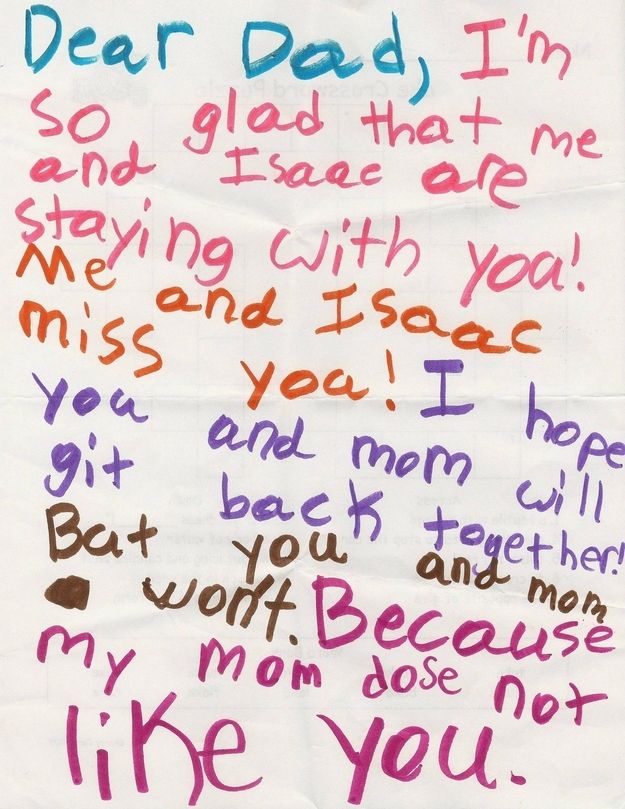 Dear Dad, I'm
so glad that me
and Isaac are
staying with you!
Me and Isaac
miss you! I hope
you and mom will
git back together!
But you and mom
won't. Because
my mom dose not
like you.